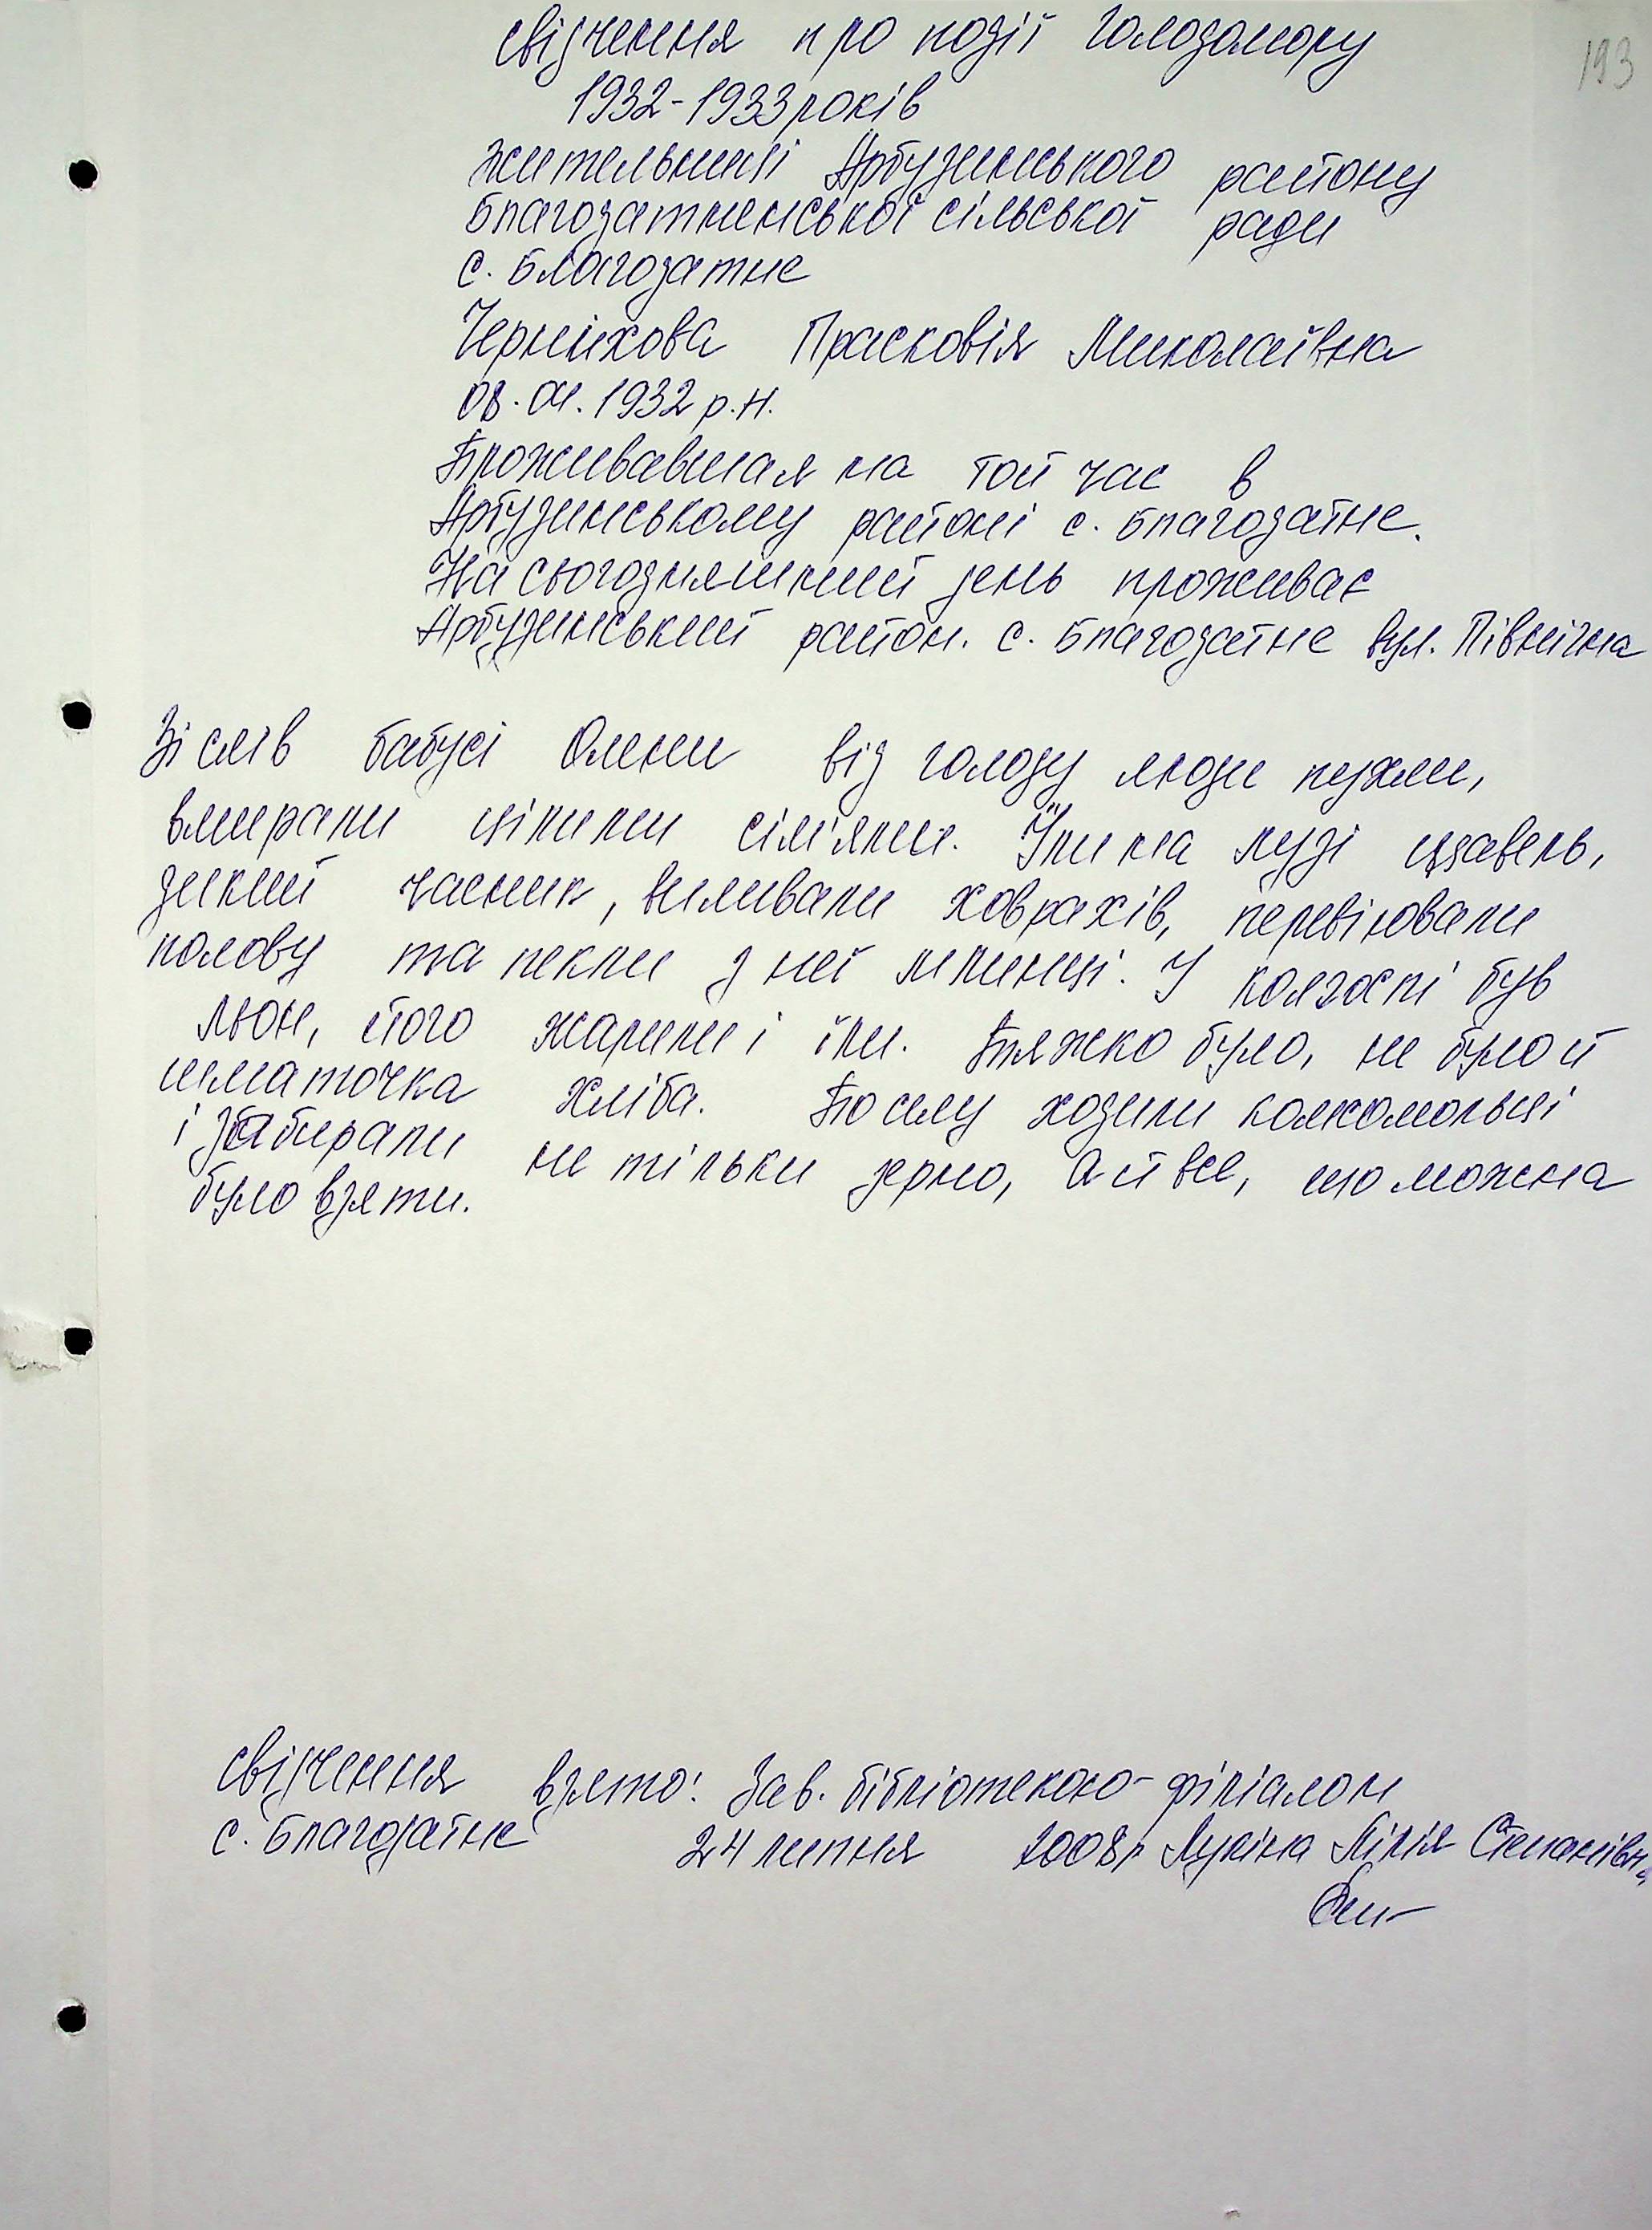 193
свідчення про події голодомору
1932-1933 років
жительниці Арбузинського району
Благодатненської сільської ради
с. Благодатне
Черніхова Прасковія Миколаївна
08.01.1932 р.н.
Проживавшая на той час в
Арбузинському районі с. Благодатне.
На сьогодняшний день проживає
Арбузинський район. с. Благодатне вул. Північна
Зі слів бабусі Олени від голоду люди пухли,
вмирали цілими сім'ями. Їли на лузі щавель,
дикий часник, виливали ховрахів, перевіювали
полову та пекли з неї млинці. У колгоспі був
льон, його жарили і їли. Тяжко було, не було й
шматочка хліба. По селу ходили комсомольці
і забирали не тільки зерно, а й все, що можна
було взяти.
свідчення взято: Зав. бібліотекою-філіалом
с. Благодатне 24 липня 2008р Лукіна Лілія Степанівна